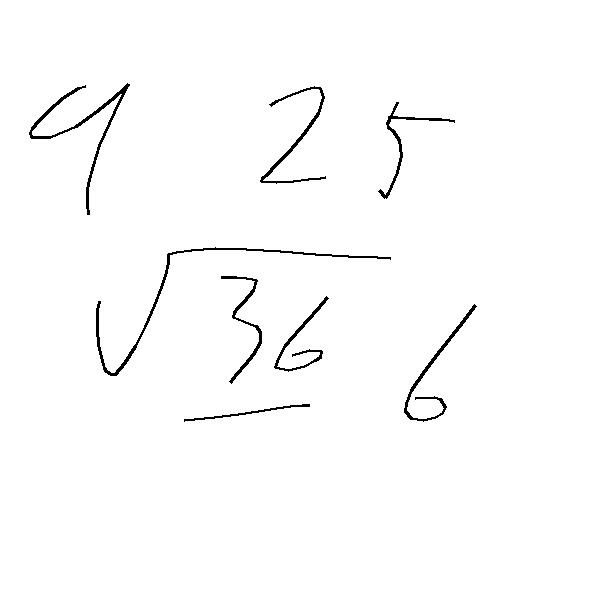 9 25
√36 6